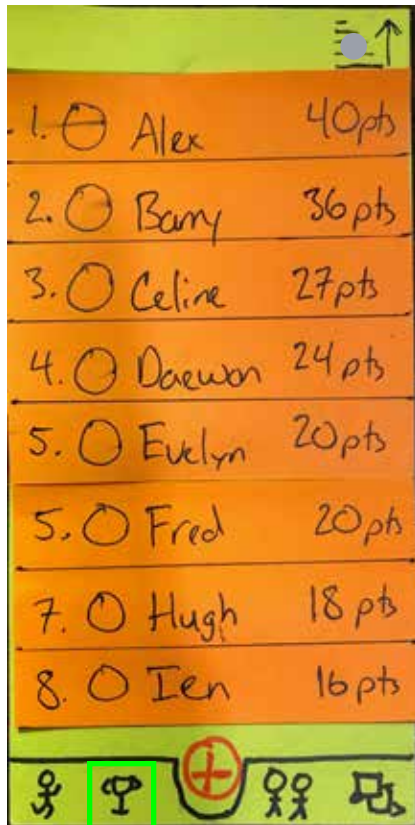 1. Alex 40pts
2. Barry 36pts
3. Celine 27pts
4. Daewon 24pts
5. Evelyn 20pts
5. Fred 20pts
7. Hugh 18pts
8. Ien 16pts